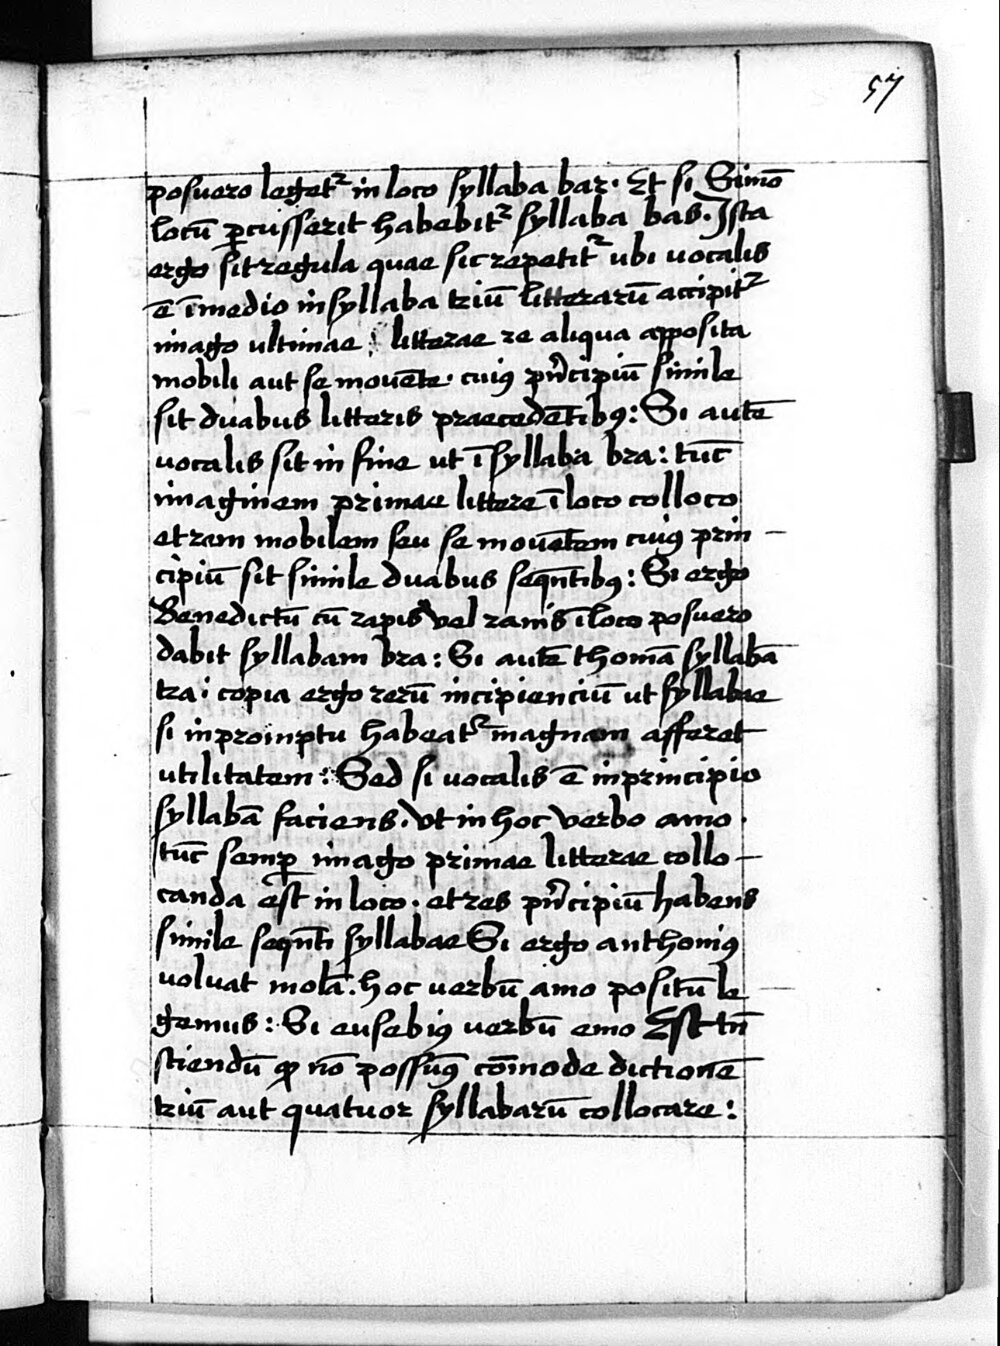 57
posuero legetr in loco syllaba bar. Et si Simō
locū ꝑcusserit habebitr syllaba bas. Ista
ergo sit regula quae sic repetitr ubi vocalis
ē ī medio in syllaba triū litterarū accipitr
imago ultimae litterae re aliqua apposita
mobili aut se movēte. cuiꝰ pn̄cipiū simile
sit duabus litteris praecedētibꝰ: Si autē
vocalis sit in fine ut ī syllaba bra: tūc
imaginem primae littere ī loco colloco
et ram mobilem seu se movētem cuiꝰ prin
cipiū sit simile duabus seqn̄tibꝰ: Si ergo
Benedictū cū rapis vel ranis ī loco posuero
dabit syllabam bra: Si autē thomā syllabā
tra: copia ergo rerū incipienciū ut syllabae
si inpromptu habeatr magnam afferet
utilitatem: Sed si vocalis ē in principio
syllabā faciens. Vt in hoc verbo amo.
tūc semꝑ imago primae litterae collo
canda est in loco. et res pn̄cipiū habens
simile seqn̄ti syllabae Si ergo anthoniꝰ
volvat molā. hoc verbū amo positū le
gemus: Si eusebiꝰ verbū emo Est tn̄
sciendū ꝙ nō possūꝰ cōmode dictionē
triū aut quatuor syllabarū collocare: